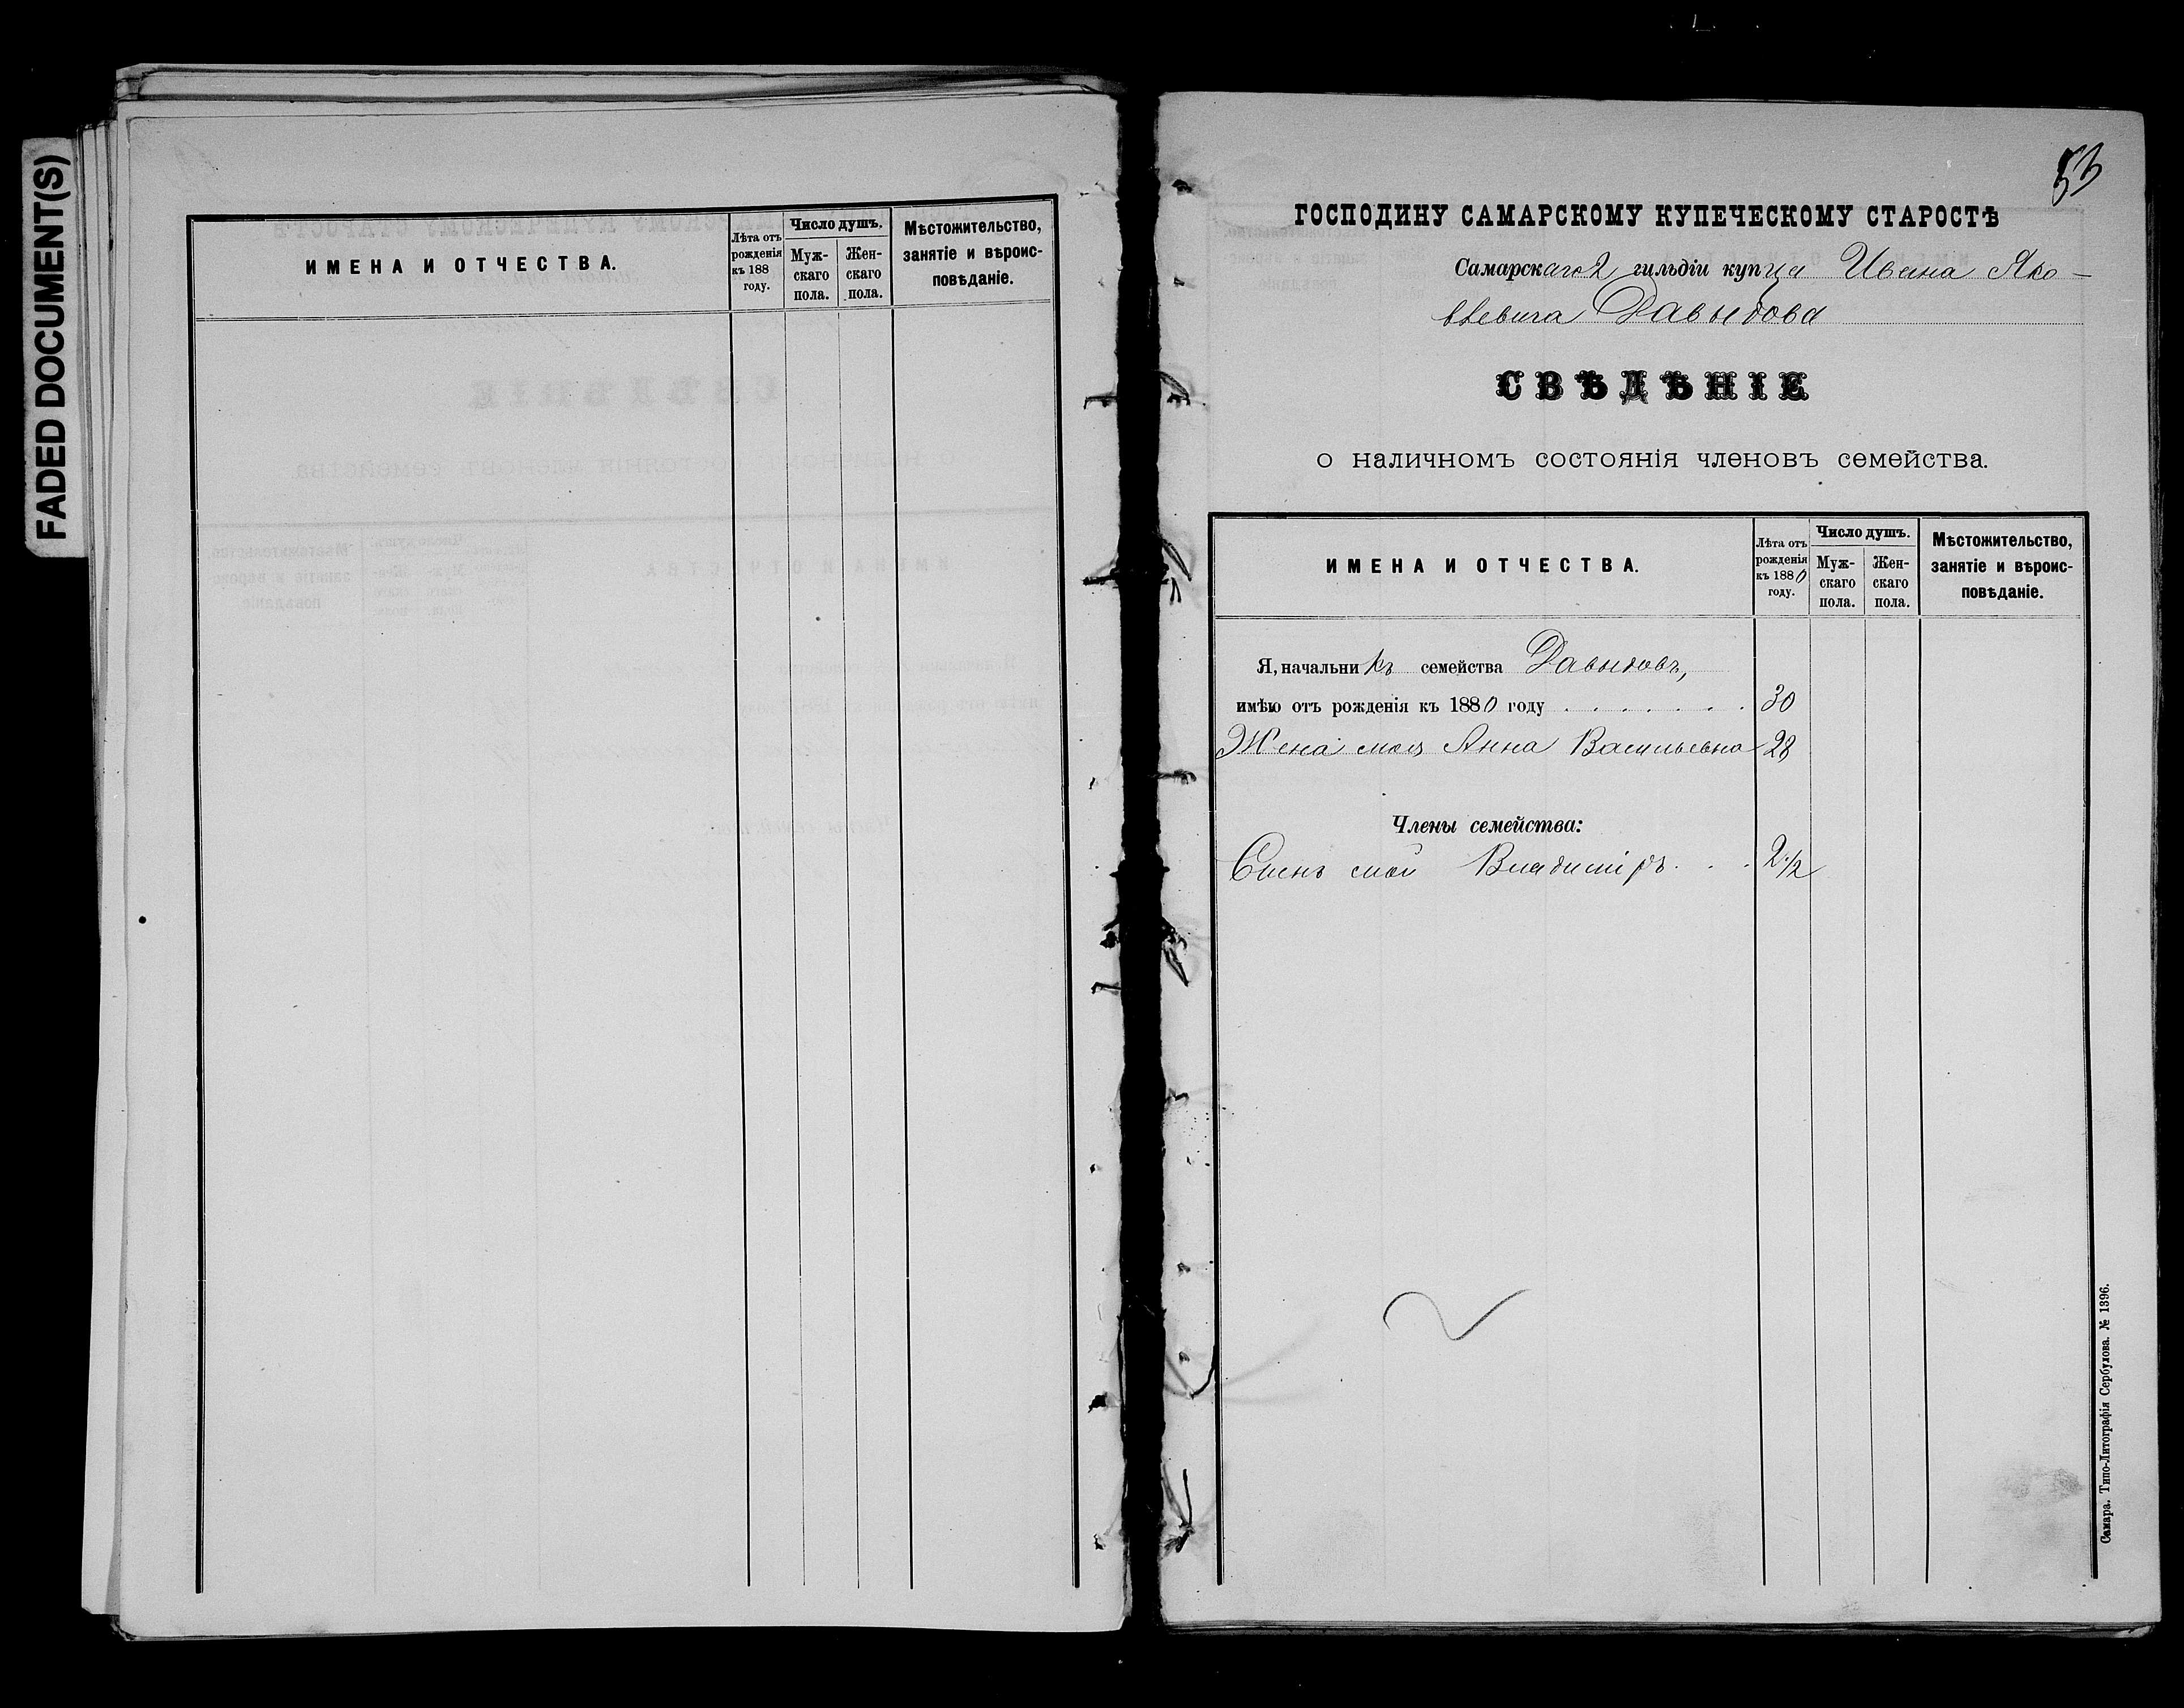 FADED DOCUMENT(S)
ИМЕНА И ОТЧЕСТВА.
Лѣта отъ рожденія къ 188 году.
Число душъ.
Муж-скаго пола.
Жен-скаго пола.
Мѣстожительство, занятіе и вѣроис-повѣданіе.
53
ГОСПОДИНУ САМАРСКОМУ КУПЕЧЕСКОМУ СТАРОСТѢ
Самарскаго 2 гильдіи купца Ивана Яко-
влевича Давыдова
СВѢДѢНІЕ
о наличномъ состоянія членовъ семейства.
ИМЕНА И ОТЧЕСТВА.
Лѣта отъ рожденія къ 1880 году.
Число душъ.
Муж-скаго пола.
Жен-скаго пола.
Мѣстожительство, занятіе и вѣроис-повѣданіе.
Я, начальникъ семейства Давыдовъ,
имѣю отъ рожденія къ 1880 году . . . . . . . 30
Жена моя Анна Васильевна 28
Члены семейства:
Сынъ мой Владиміръ . . . 2 1/2
Самара. Типо-Литографія Сербулова. № 1396.